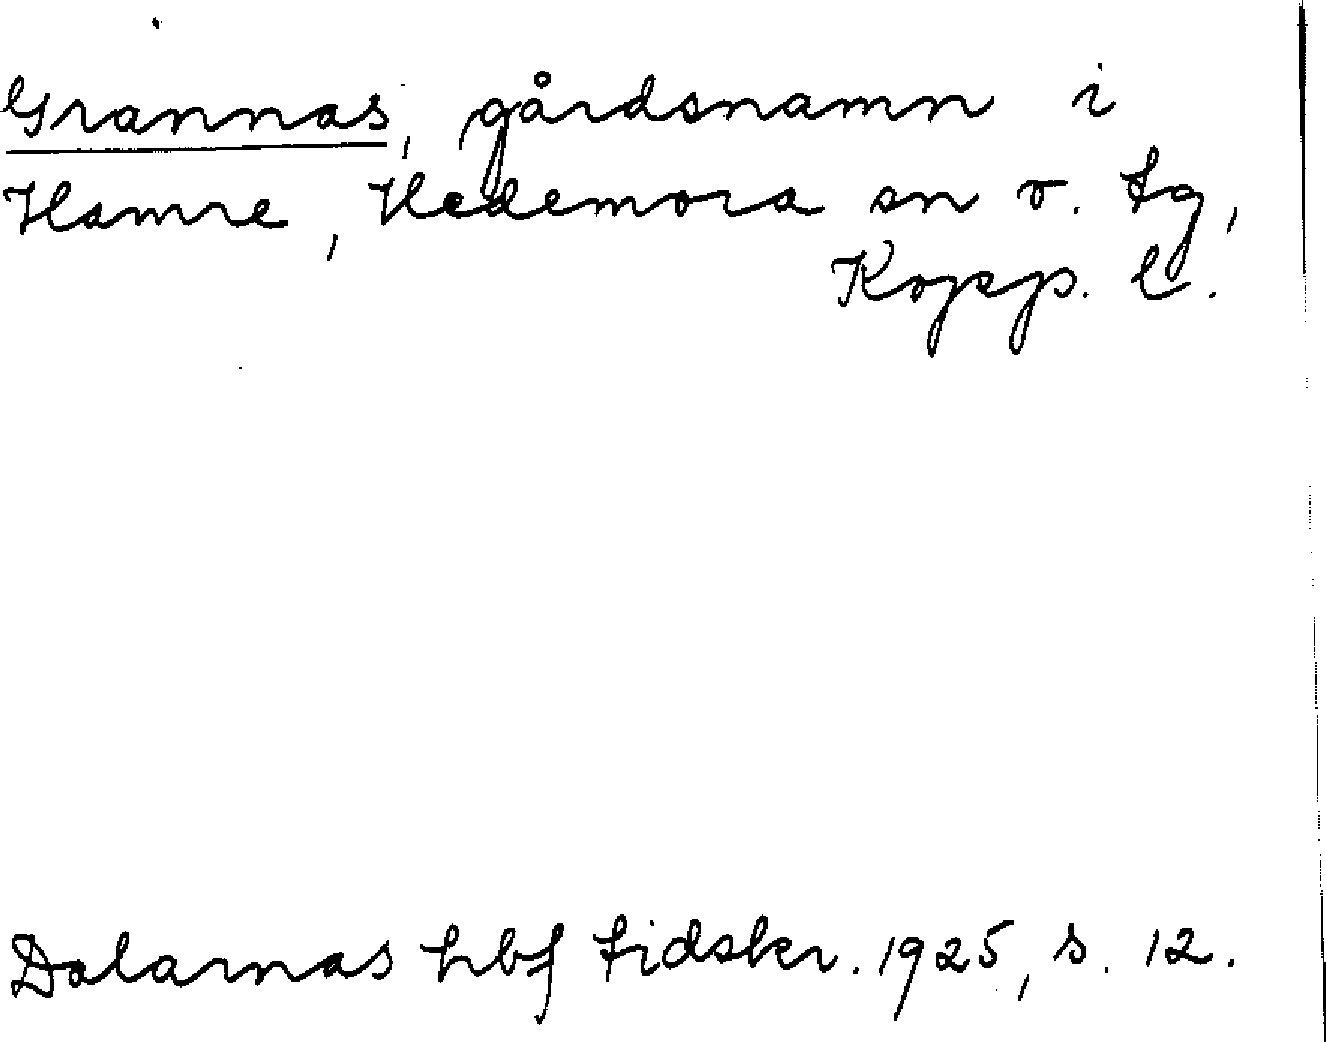 Grannas, gårdsnamn i
Hamre, Hedemora sn o. tg,
Kopp. l.
Dalarnas hbf tidskr. 1925, s. 12.